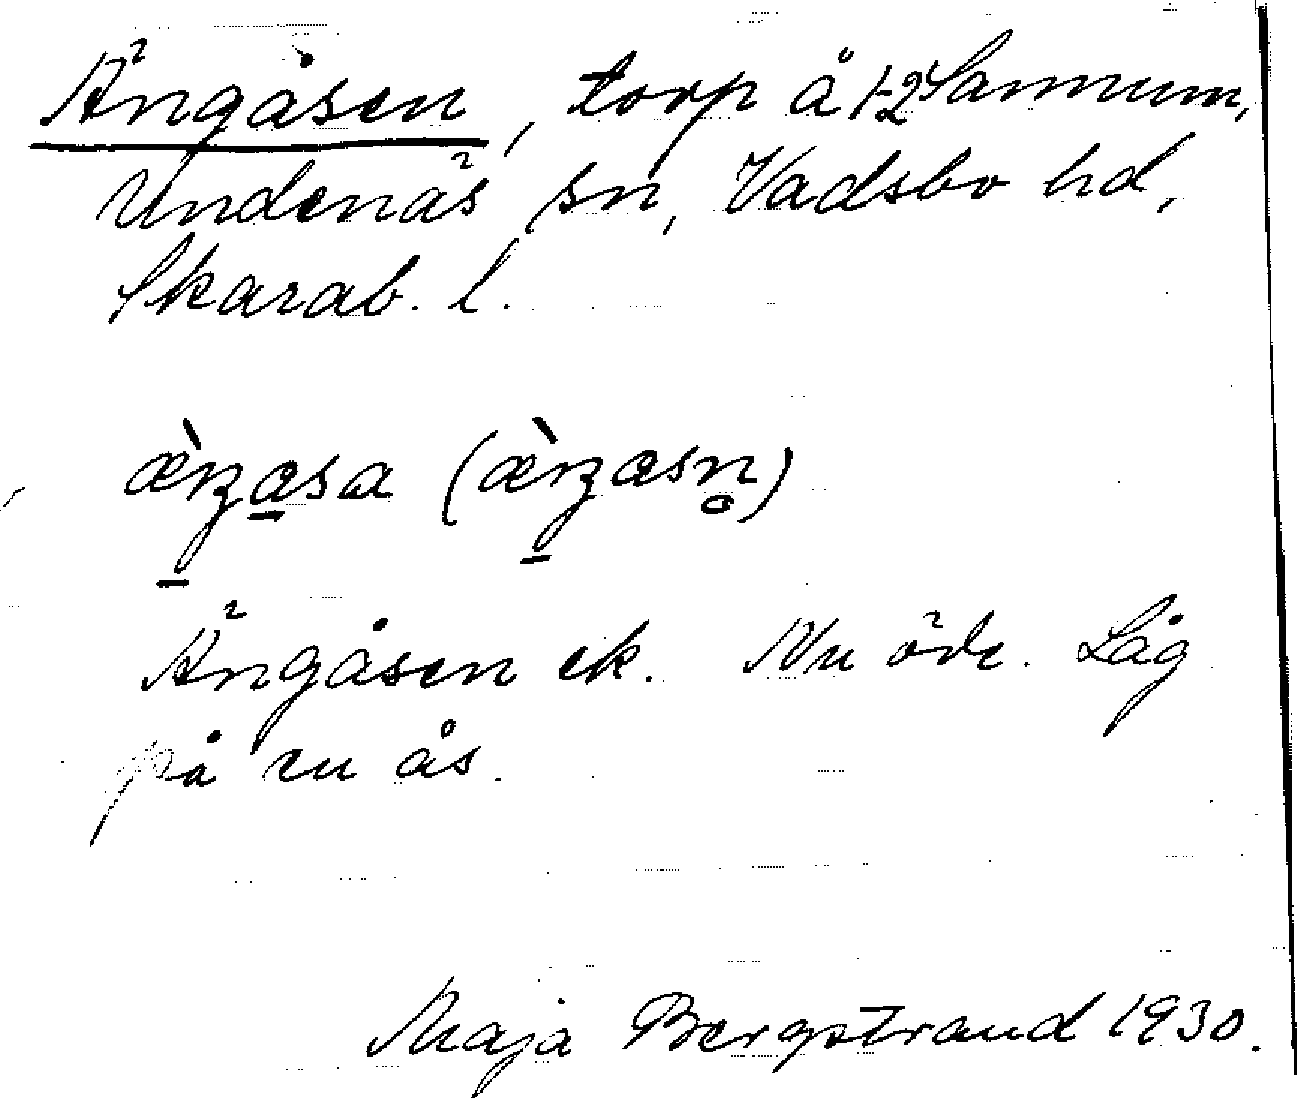 Ängåsen, torp å 1-2 Sannum,
Undenäs sn, Vadsbo hd,
Skarab. l.
æ̀ŋa̱sa (æ̀ŋasn̥)
Ängåsen ek. Nu öde. Låg
på en ås.
Maja Bergstrand 1930.